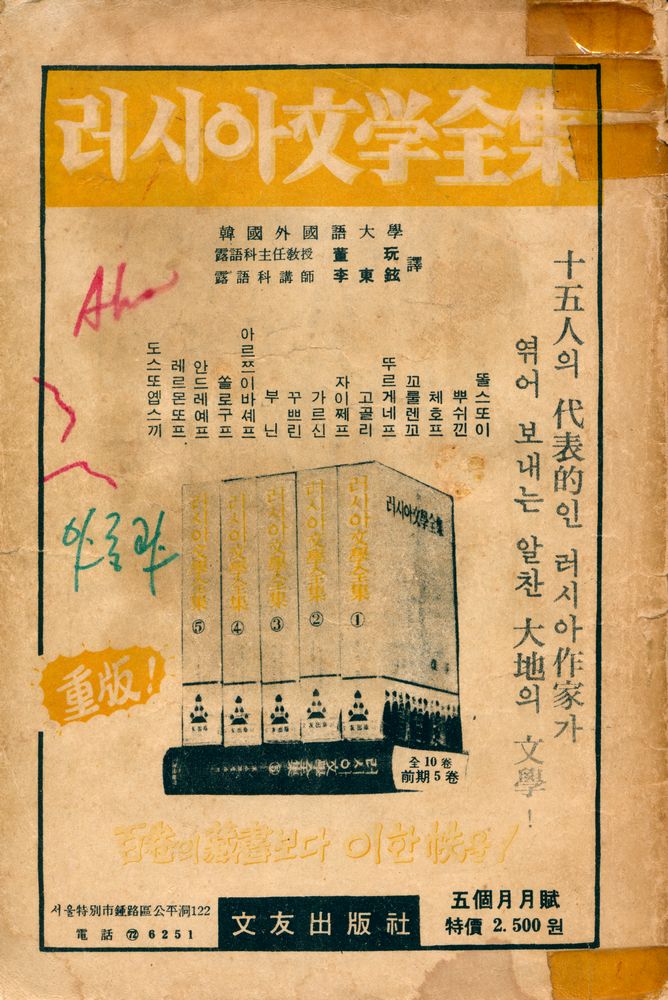 러시아文学全集
韓國外國語大學
露語科主任敎授 董玩
露語科講師 李東鉉
譯
十五人의 代表的인 러시아作家가
엮어 보내는 알찬 大地의 文學!
똘스또이
뿌쉬낀
체호프
꼬롤렌꼬
뚜르게네프
고골리
자이쩨프
가르신
꾸쁘린
부닌
아르쯔이바셰프
쏠로구프
안드레예프
레르몬또프
도스또옙스끼
러시아文學全集
러시아文學全集 ①
러시아文學全集 ②
러시아文學全集 ③
러시아文學全集 ④
러시아文學全集 ⑤
러시아文學全集
全10卷
前期5卷
重版!
百卷의 藏書보다 이한帙을!
서울特別市鍾路區公平洞122
電話 ㉒ 6251
文友出版社
五個月月賦
特價 2.500원